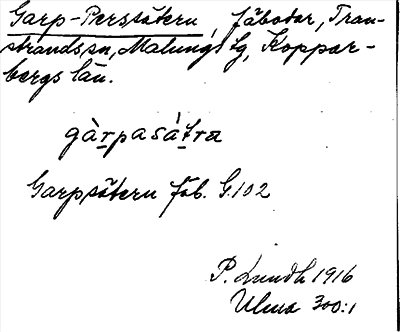 Garp-Perssätern, fäbodar, Tran-
strands sn, Malungs tg, Koppar-
bergs län.
gàrpasá̀tra
Garpsätern fäb. G.102
P. Lundh 1916
Ulma 300:1